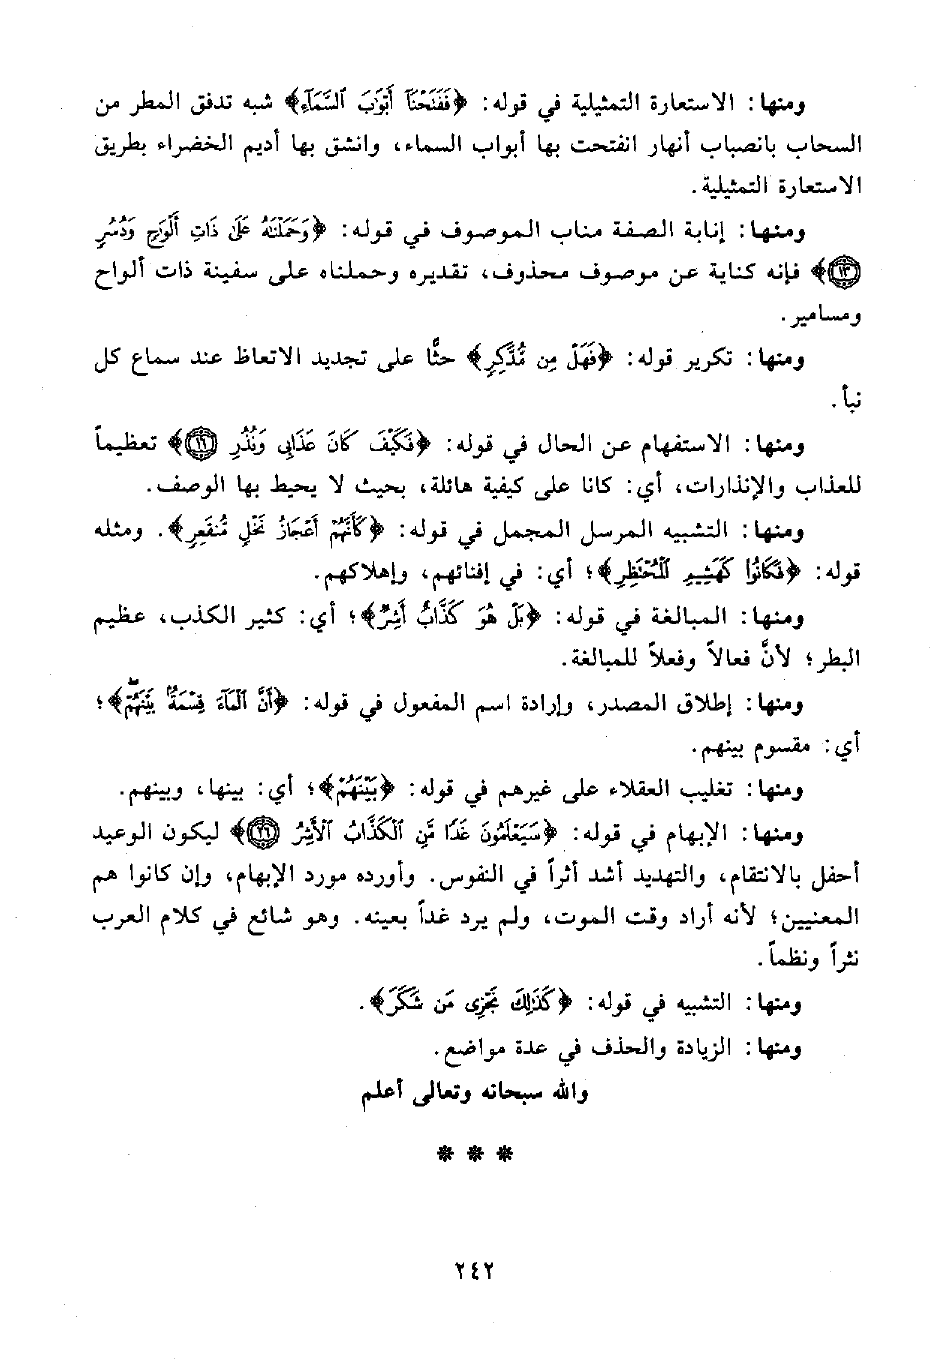 ومنها: الاستعارة التمثيلية في قوله: ﴿فَفَتَحْنَآ أَبْوَٰبَ ٱلسَّمَآءِ﴾ شبه تدفق المطر من
السحاب بانصباب أنهار انفتحت بها أبواب السماء، وانشق بها أديم الخضراء بطريق
الاستعارة التمثيلية.
ومنها: إنابة الصفة مناب الموصوف في قوله: ﴿وَحَمَلْنَٰهُ عَلَىٰ ذَاتِ أَلْوَٰحٍ وَدُسُرٍ
١٣﴾ فإنه كناية عن موصوف محذوف، تقديره وحملناه على سفينة ذات ألواح
ومسامير.
ومنها: تكرير قوله: ﴿فَهَلْ مِن مُّدَّكِرٍ﴾ حثًّا على تجديد الاتعاظ عند سماع كل
نبأ.
ومنها: الاستفهام عن الحال في قوله: ﴿فَكَيْفَ كَانَ عَذَابِى وَنُذُرِ ١٦﴾ تعظيماً
للعذاب والإنذارات، أي: كانا على كيفية هائلة، بحيث لا يحيط بها الوصف.
ومنها: التشبيه المرسل المجمل في قوله: ﴿كَأَنَّهُمْ أَعْجَازُ نَخْلٍ مُّنقَعِرٍ﴾. ومثله
قوله: ﴿فَكَانُوا۟ كَهَشِيمِ ٱلْمُحْتَظِرِ﴾؛ أي: في إفنائهم، وإهلاكهم.
ومنها: المبالغة في قوله: ﴿بَلْ هُوَ كَذَّابٌ أَشِرٌ﴾؛ أي: كثير الكذب، عظيم
البطر؛ لأنَّ فعالاً وفعلاً للمبالغة.
ومنها: إطلاق المصدر، وإرادة اسم المفعول في قوله: ﴿أَنَّ ٱلْمَآءَ قِسْمَةٌۢ بَيْنَهُمْ﴾؛
أي: مقسوم بينهم.
ومنها: تغليب العقلاء على غيرهم في قوله: ﴿بَيْنَهُمْ﴾؛ أي: بينها، وبينهم.
ومنها: الإبهام في قوله: ﴿سَيَعْلَمُونَ غَدًا مَّنِ ٱلْكَذَّابُ ٱلْأَشِرُ ٢٦﴾ ليكون الوعيد
أحفل بالانتقام، والتهديد أشد أثراً في النفوس. وأورده مورد الإبهام، وإن كانوا هم
المعنيين؛ لأنه أراد وقت الموت، ولم يرد غداً بعينه. وهو شائع في كلام العرب
نثراً ونظماً.
ومنها: التشبيه في قوله: ﴿كَذَٰلِكَ نَجْزِى مَن شَكَرَ﴾.
ومنها: الزيادة والحذف في عدة مواضع.
والله سبحانه وتعالى أعلم
* * *
٢٤٢